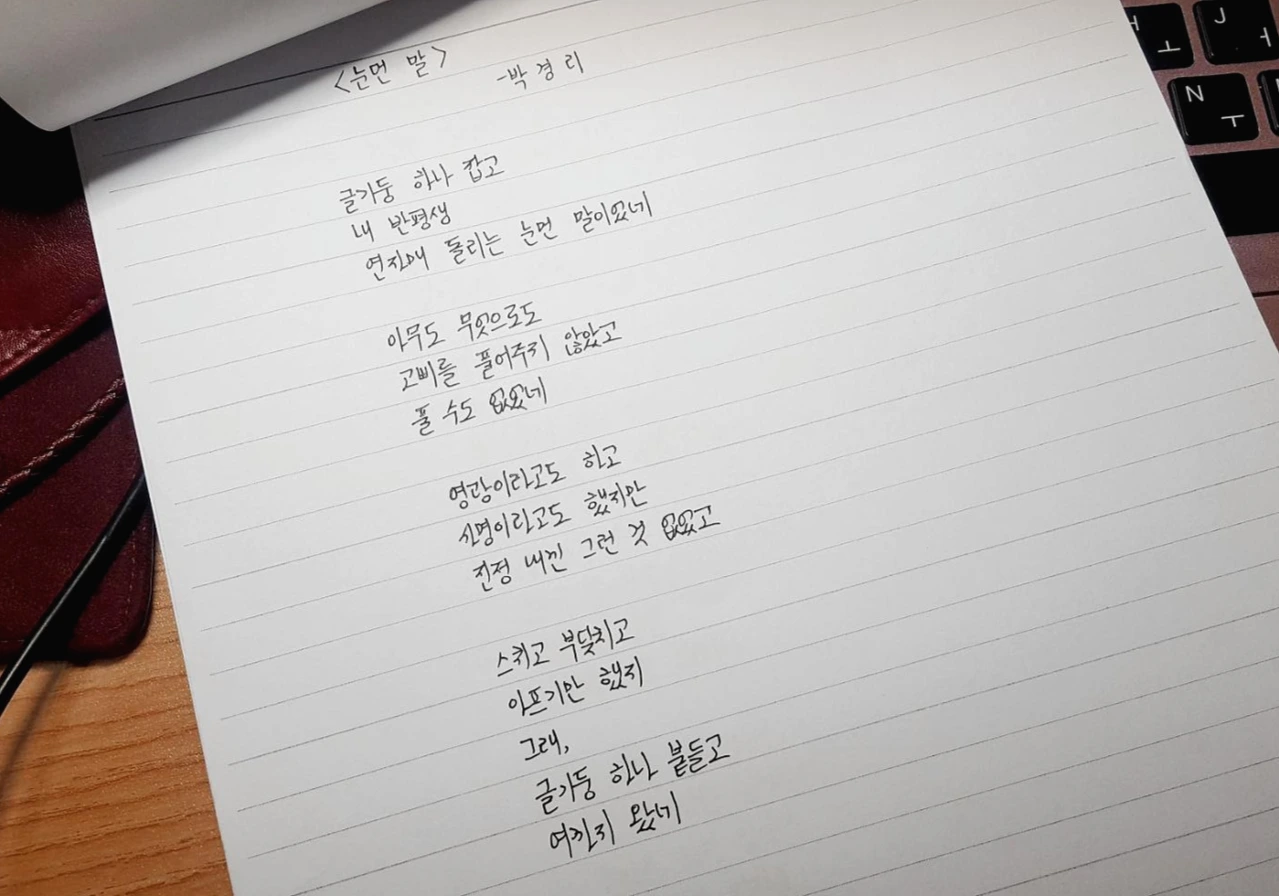 <눈먼 말>
-박경리
글기둥 하나 잡고
내 반평생
연자매 돌리는 눈먼 말이었네
아무도 무엇으로도
고삐를 풀어주지 않았고
풀 수도 없었네
영광이라고도 하고
사명이라고도 했지만
진정 내겐 그런 것 없었고
스치고 부딪치고
아프기만 했지
그래,
글기둥 하나 붙들고
여까지 왔네
H ㅗ
J ㅓ
N ㅜ